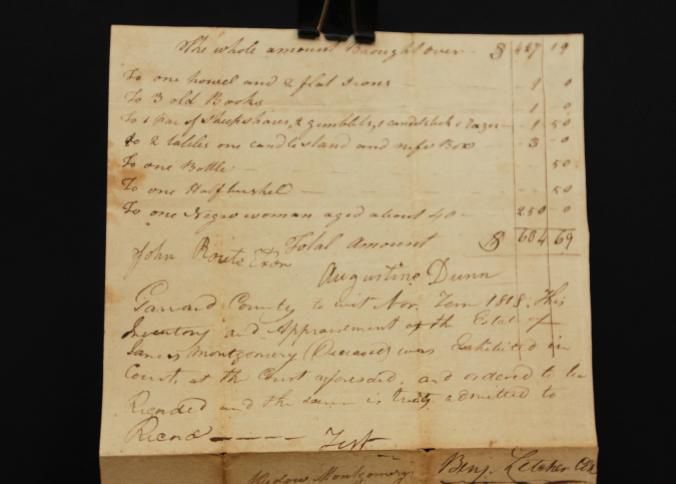 The whole amount Brought over - $ 427 19
To one howel and 2 flat Irons 1 0
To 3 old Books 1 0
To 1 par of sheepshares, 2 gimblets, 1 candlestick & Razor - 1 50
To 2 tables one candlestand and nife Box - 3 0
To one Bottle - 50
To one Halfbushel - 50
To one Negro woman aged about 40 - 250 0
Total Amount $ 604 69
John Route Exor
Augustine Dunn
Garrard County to wit Nov. Term 1818. This
Inventory and Appraisement of the Estate of
James Montgomery (Deceased) was Exhibited in
Court, at the Court aforesaid. and ordered to be
Recorded and the same is truly admitted to
Record - - - - Test
Benj. Letcher Clk
Widow Montgomery